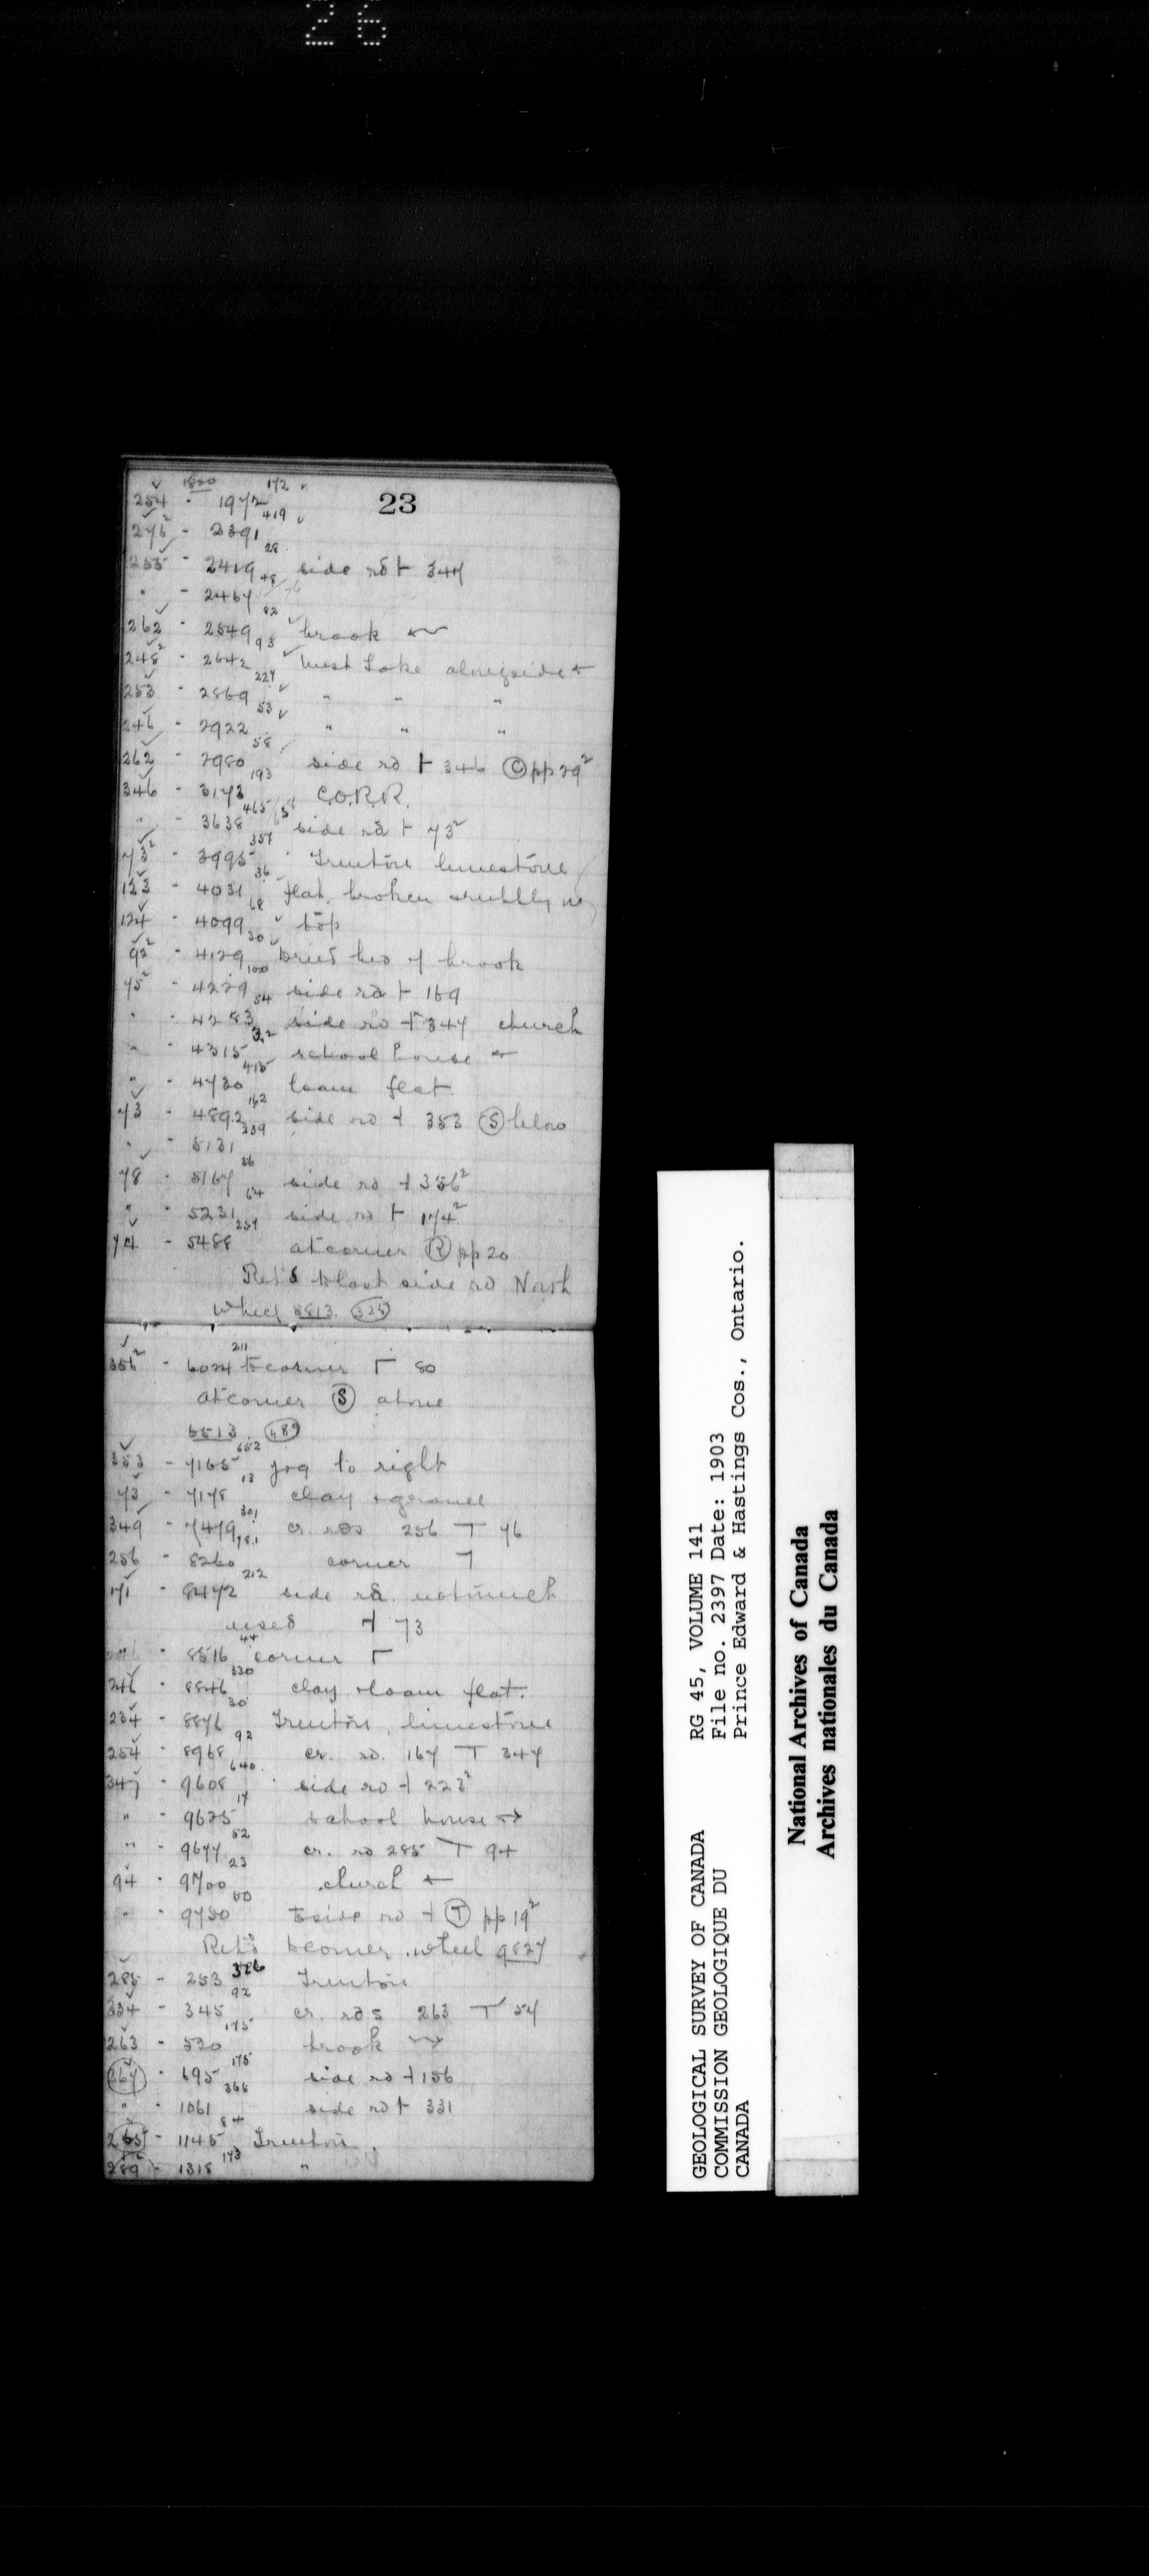 26
23
1800 172
254 - 1972
419
276² - 2391
28
255 - 2419 side rd ⊢ 347
48
" - 2467
82
262 - 2549 brook
93
248² - 2642 West Lake alongside ←
227
253 - 2869 " " "
53
246 - 2922 " " "
58
262 - 2980 side rd ⊢ 346 Ⓒ pp 29²
193
346 - 3173 C.O.R.R.
465
" - 3638 side rd ⊢ 73²
357
73² - 3995 Trenton limestone
36
123 - 4031 flat, broken
68
124 - 4099 top
30
92² - 4129 Dried bed of brook
100
75² - 4229 side rd ⊢ 169
54
" - 4283 side rd ⊣ 347 church
32
" - 4315 school house ←
415
" - 4730 loam flat
162
73 - 4892 side rd ⊣ 353 Ⓢ below
239
" - 5131
36
78 - 5167 side rd ⊣ 356²
64
" - 5231 side rd ⊢ 174²
257
74 - 5488 at corner Ⓡ pp 20
Ret'd to last side rd North
wheel 5813. (325)
211
356² - 6024 to corner ┌ 80
at corner Ⓢ above
6513. (489)
652
353 - 7165 jog to right
13
73 - 7178 clay & gravel
301
349 - 7479 cr. rds 256 ⊤ 76
781
256 - 8260 corner ┐
212
171 - 8472 side rd. not much
used ⊣ 73
44
" - 8516 corner ┌
330
246 - 8846 clay & loam flat.
30
234 - 8876 Trenton limestone
92
254 - 8968 cr. rd. 167 ⊤ 347
640
347 - 9608 side rd ⊣ 223²
17
" - 9625 school house →
52
" - 9677 cr. rd 285 ⊤ 94
23
94 - 9700 church ←
50
" - 9750 to side rd ⊣ Ⓣ pp 19²
Ret'd to corner. wheel 9827
326
285 - 253 Trenton
92
334 - 345 cr. rds 263 ⊤ 57
175
263 - 520 brook
175
267 - 695 side rd ⊣ 156
366
" - 1061 side rd ⊢ 331
84
265 - 1145 Trenton.
173
289 - 1318 "
GEOLOGICAL SURVEY OF CANADA
COMMISSION GEOLOGIQUE DU
CANADA
RG 45, VOLUME 141
File no. 2397 Date: 1903
Prince Edward & Hastings Cos., Ontario.
National Archives of Canada
Archives nationales du Canada